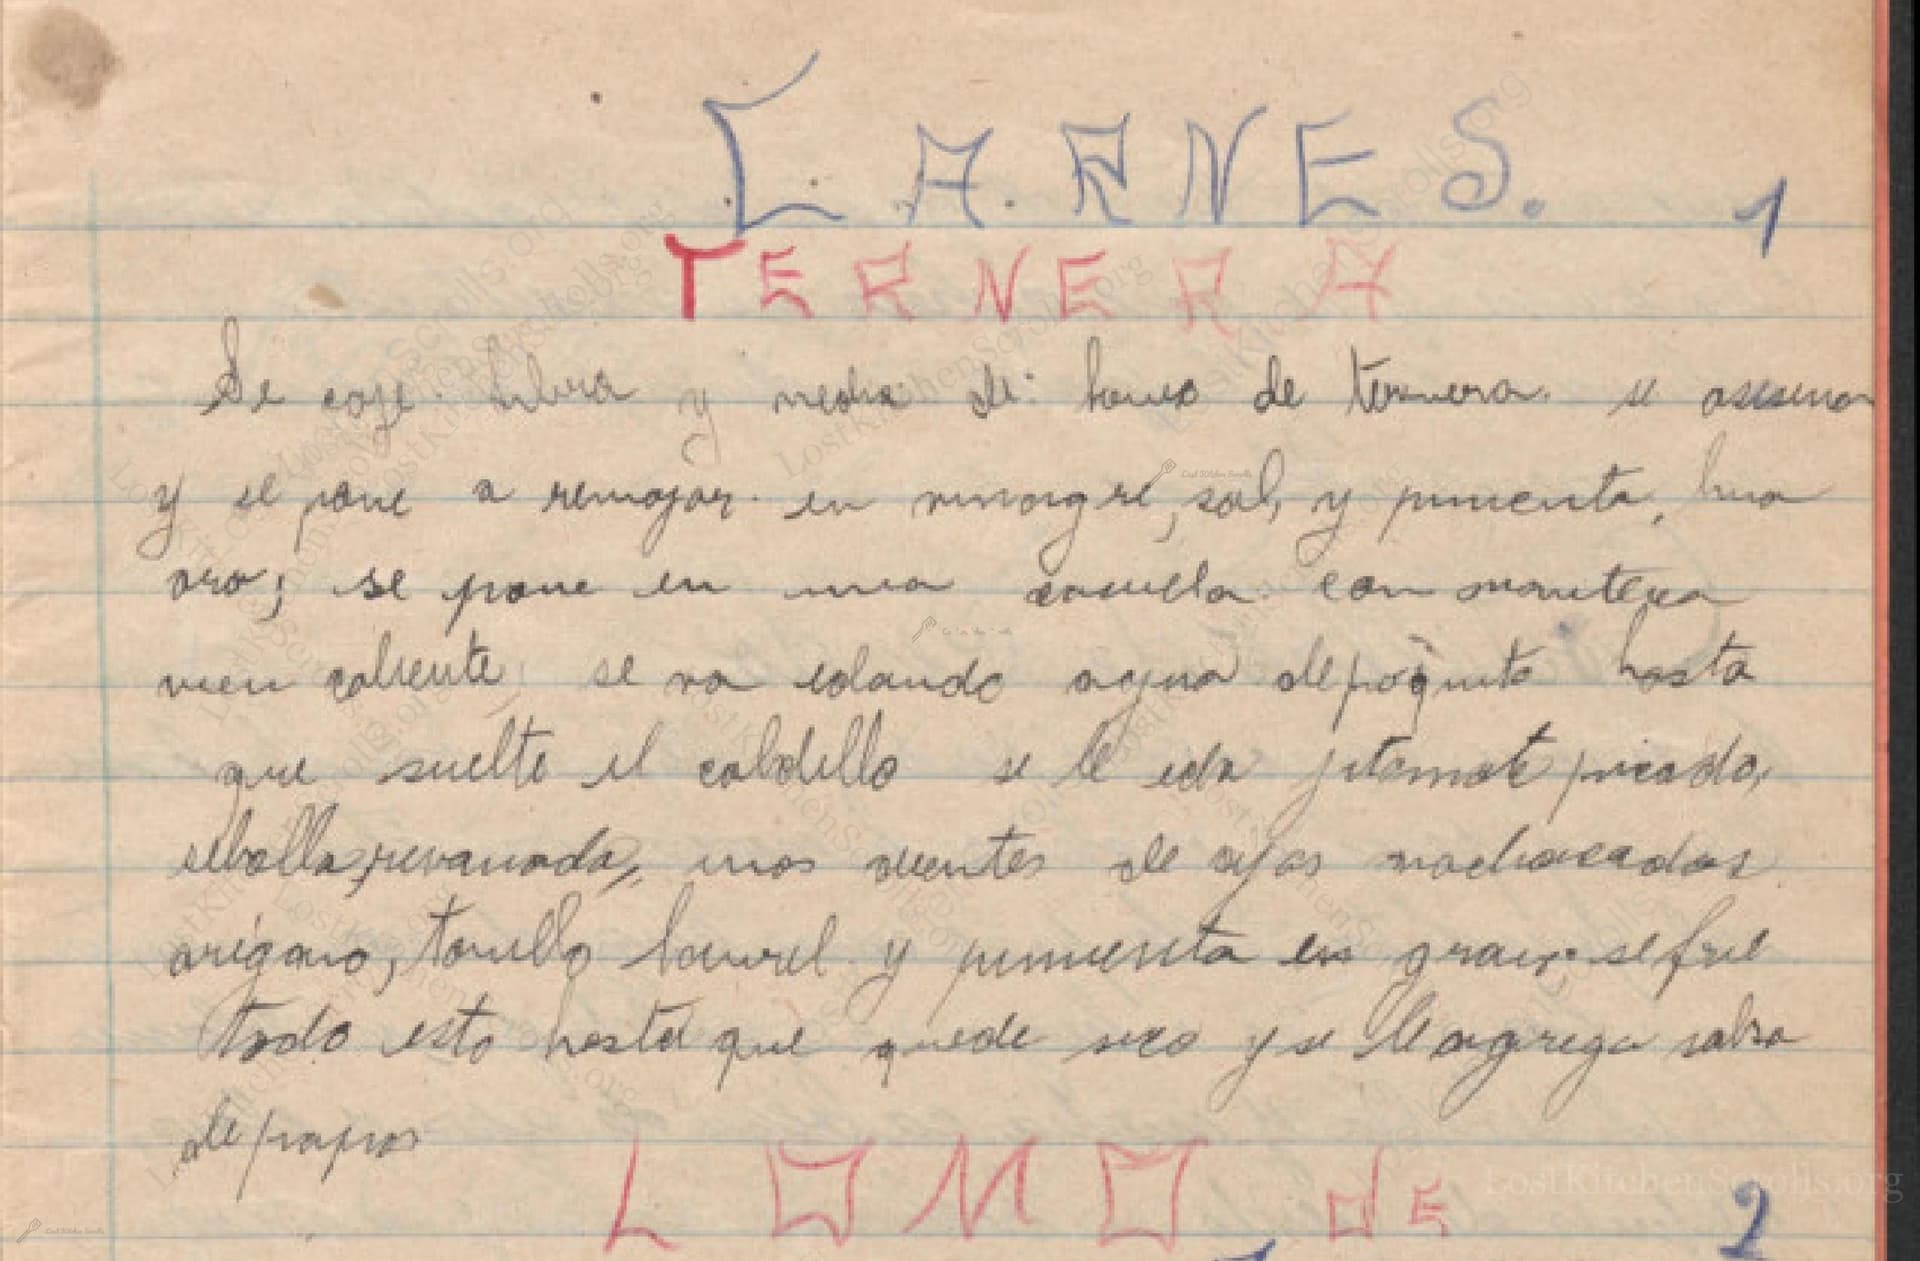 CARNES.
1
TERNERA
Se coje libra y media de lomo de ternera. se
y se pone a remojar en vinagre, sal, y pimienta, hna
ora; se pone en una casuela con manteca
vien caliente, se va echando agua depoquito hasta
que suelte el caldillo se le eda jitomate picado,
sebolla, revanada, unos dientes de ajos machacados
origano, tomillo laurel y pimienta en grano. se frie
todo esto hasta que quede seco y se le agrega salsa
de papas
LOMO de
2
LostKitchenScrolls.org